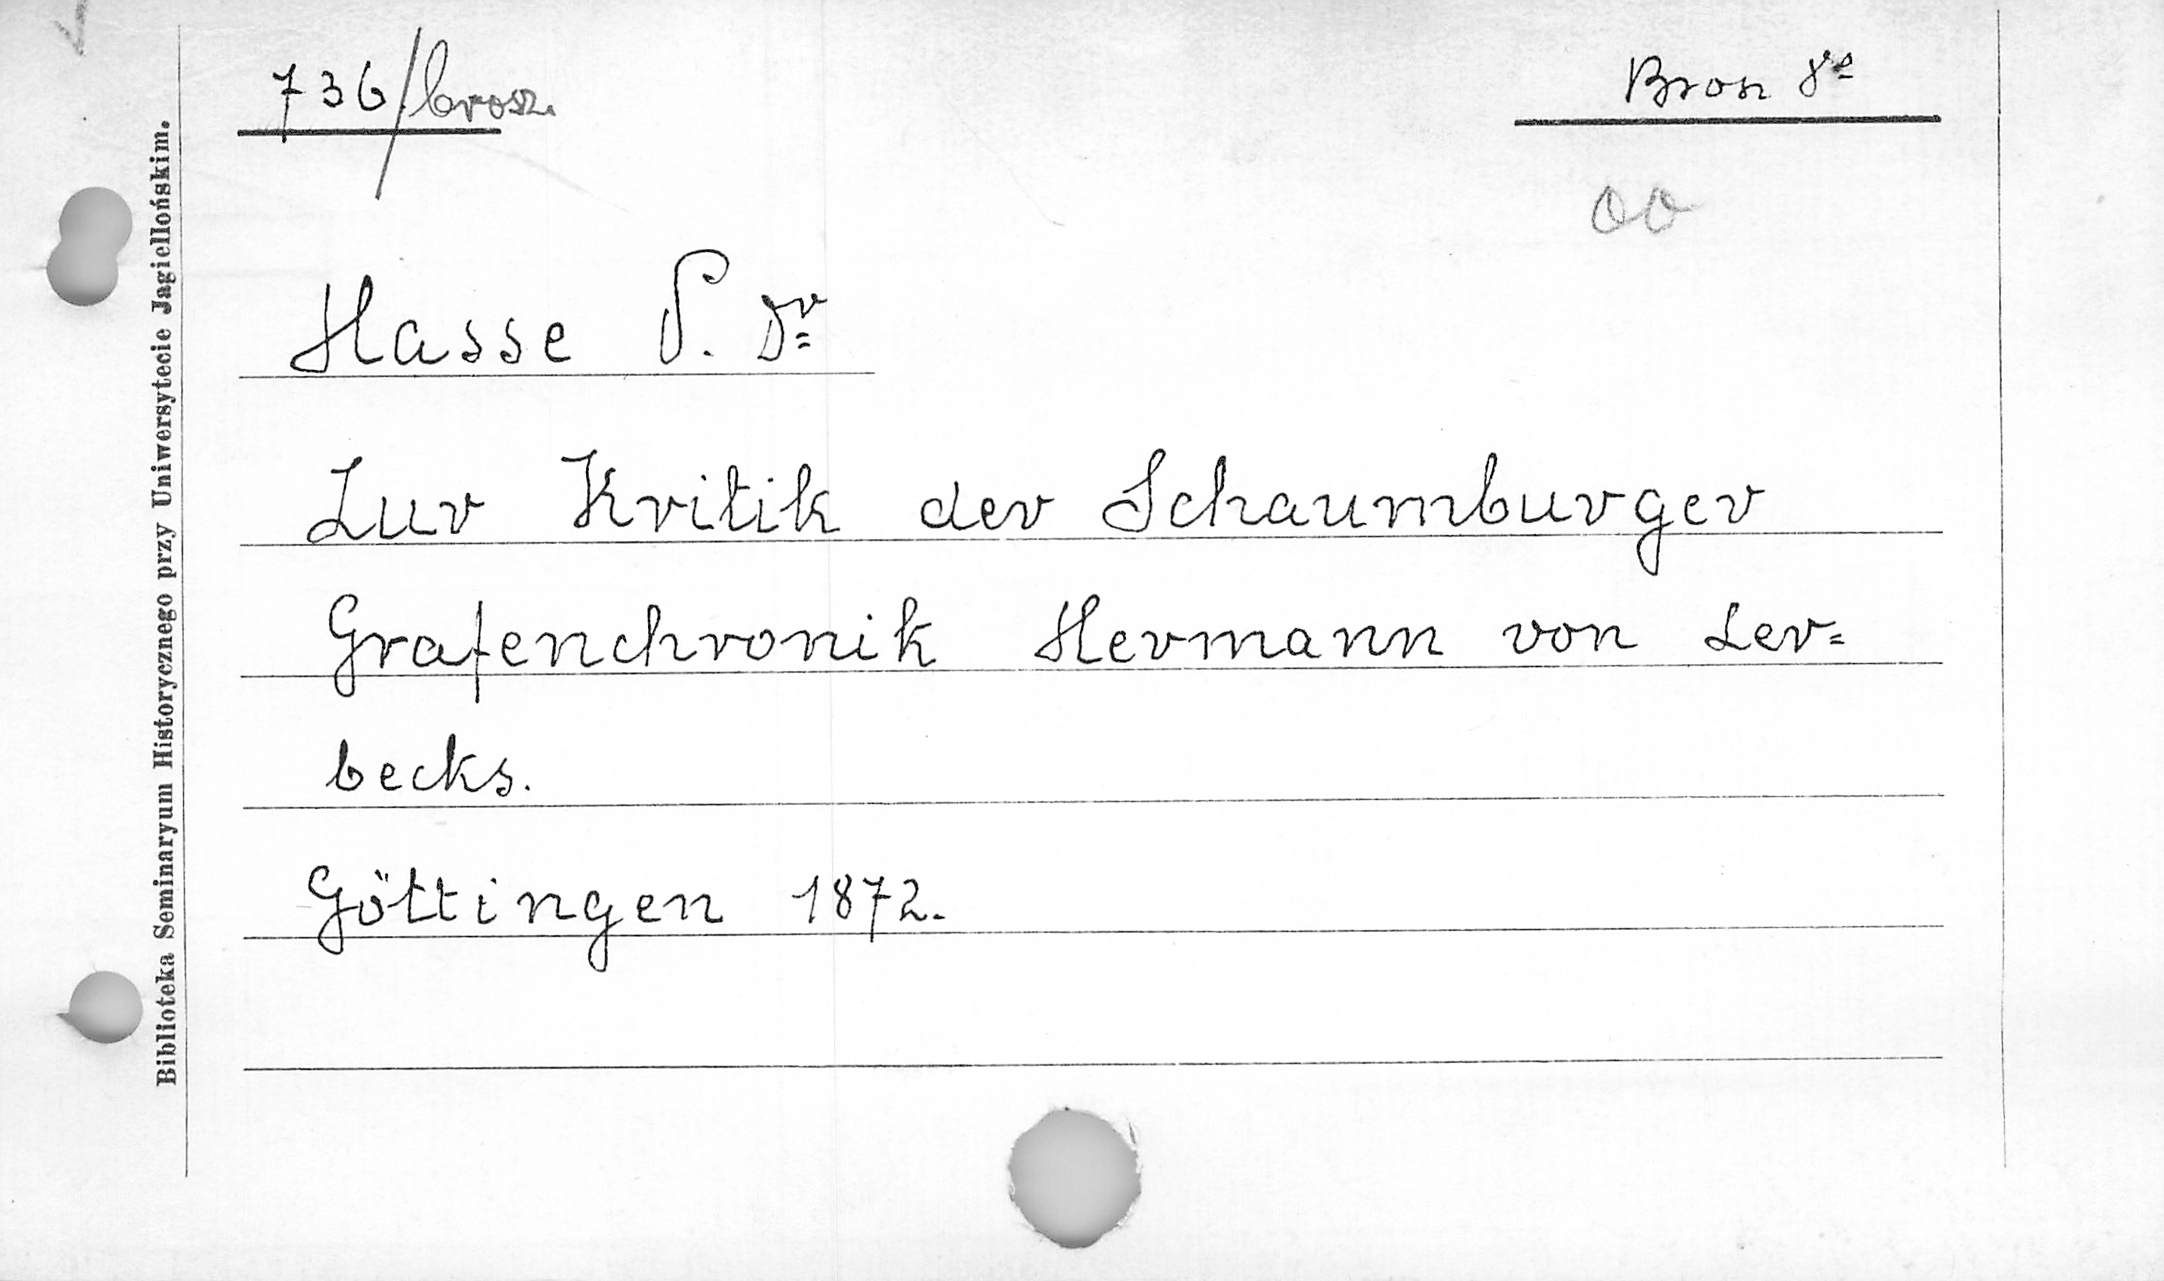 736/brosz.
Bron 8º
00
Hasse P. Dr
Zur Kritik der Schaumburger
Grafenchronik Hermann von Ler=
becks.
Göttingen 1872.
Biblioteka Seminaryum Historycznego przy Uniwersytecie Jagiellońskim.